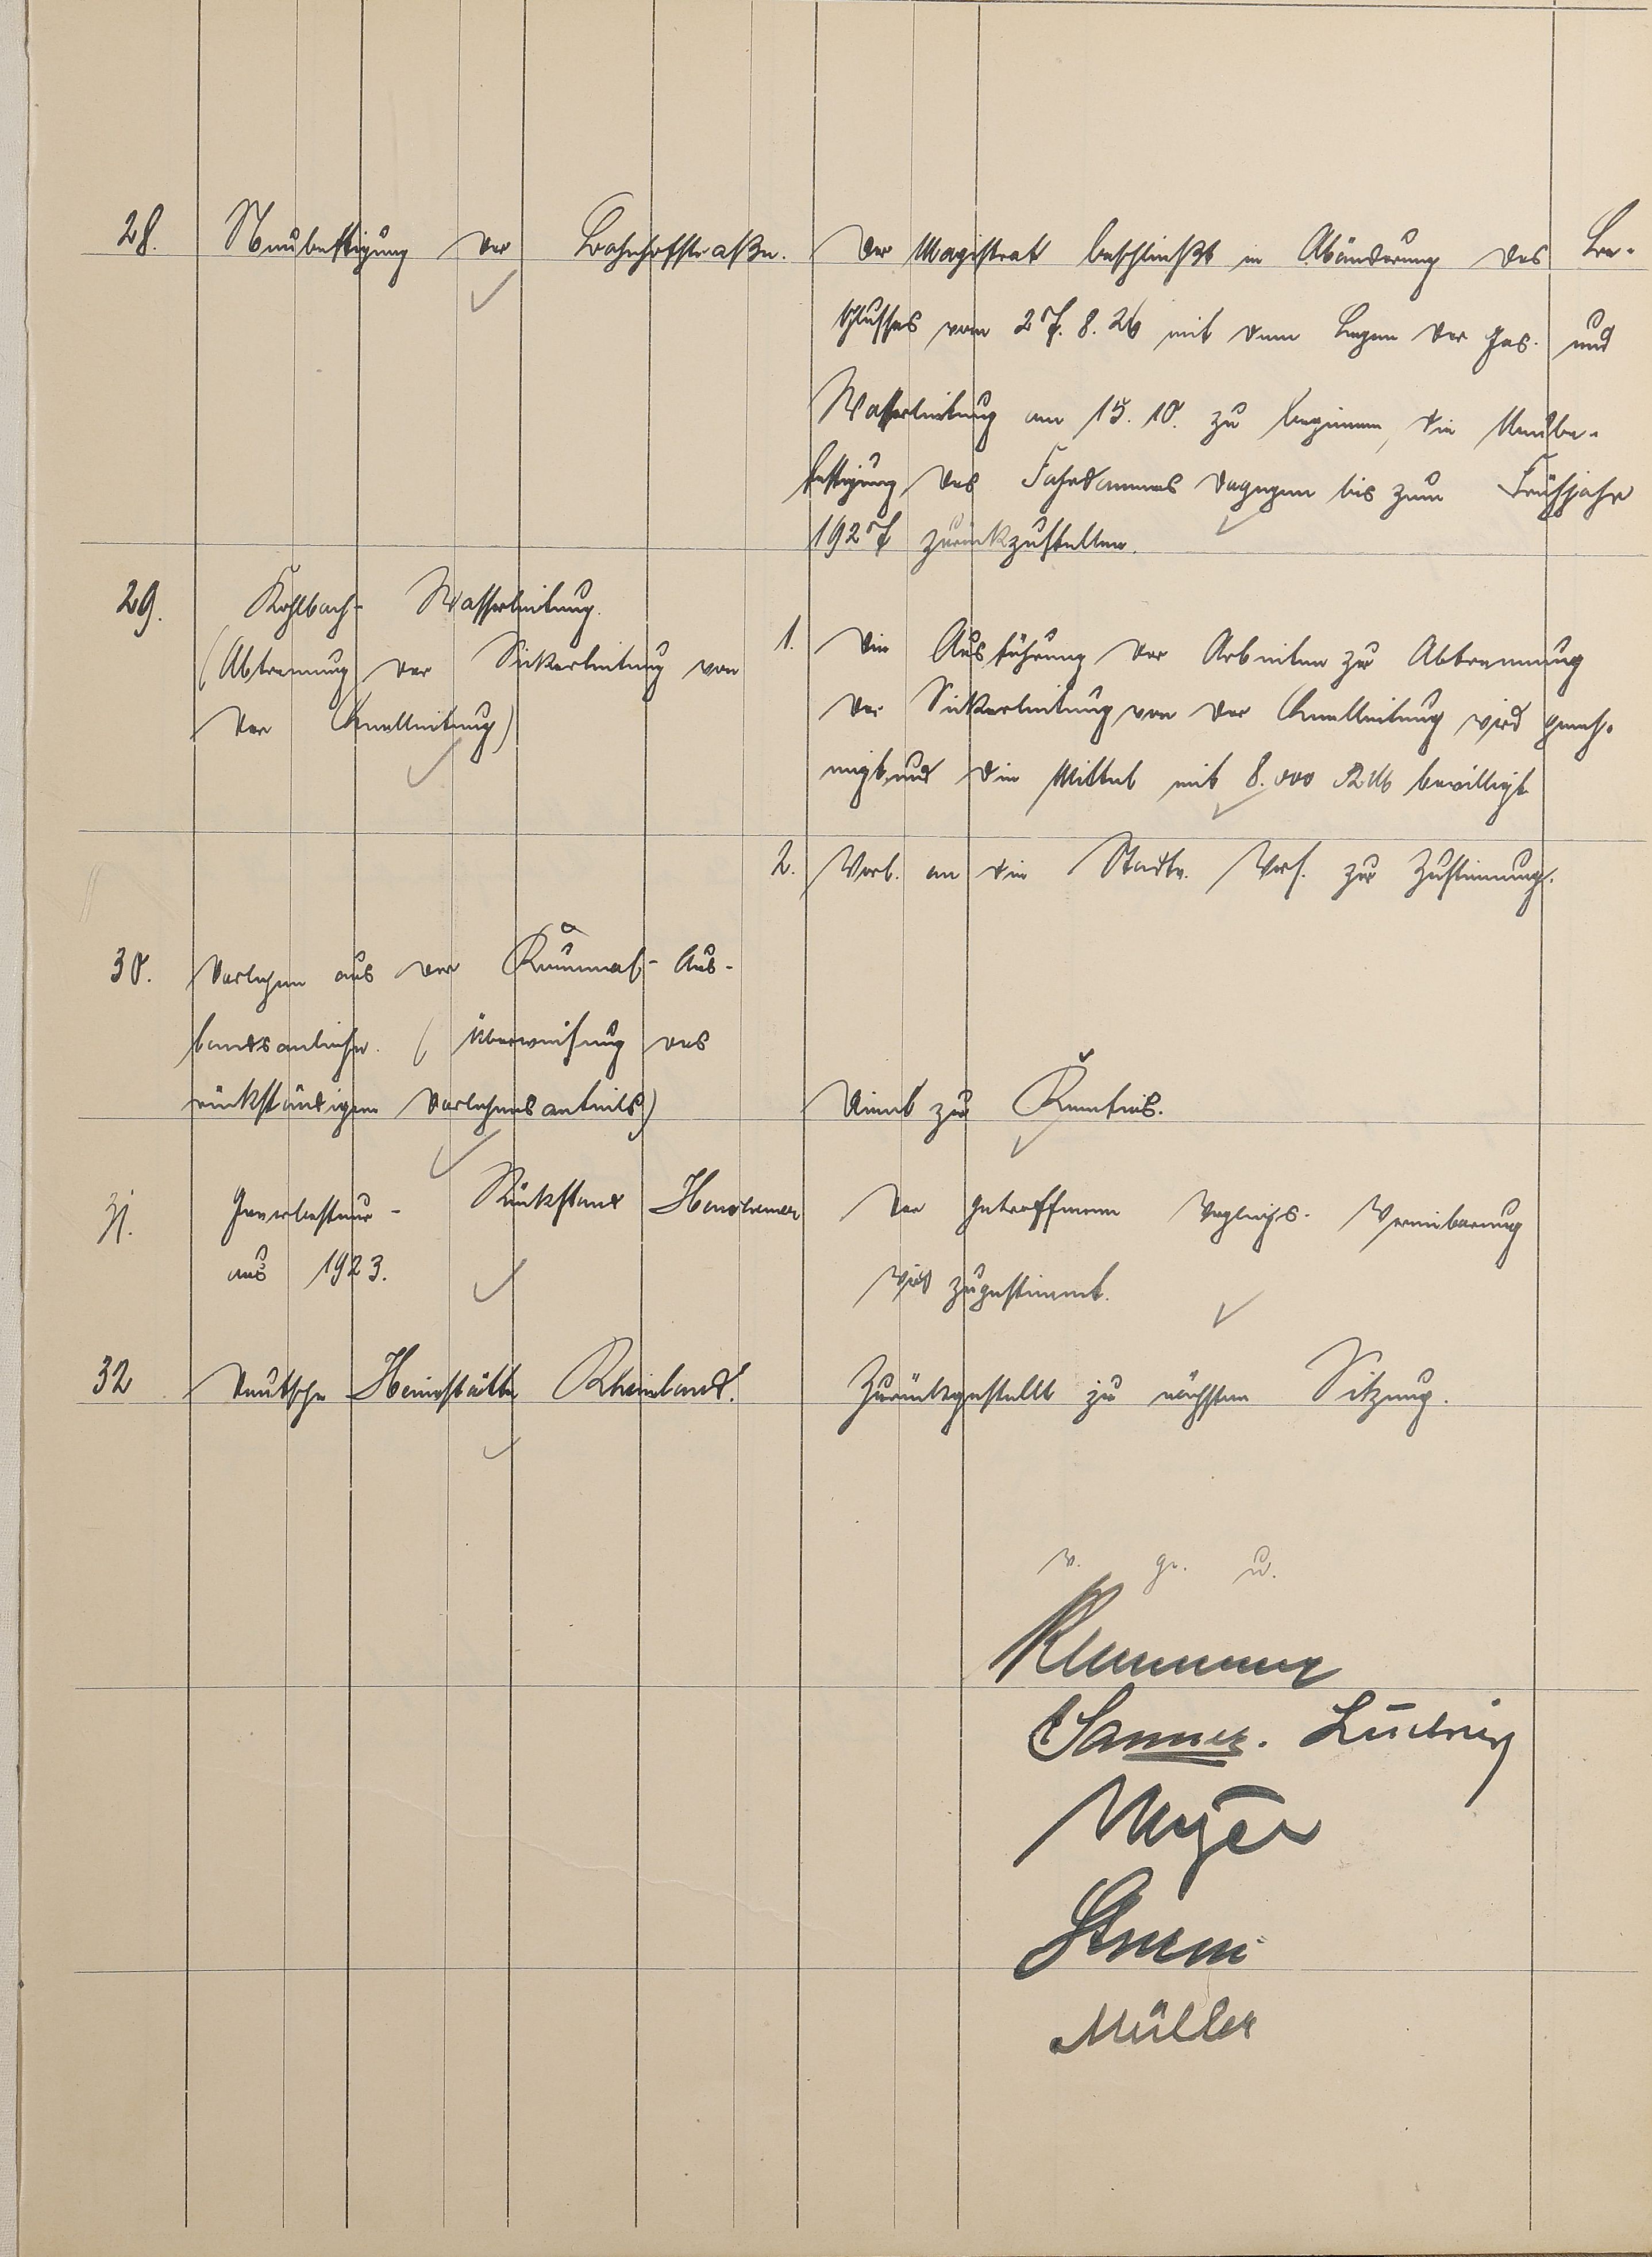 28. Neubefestigung der Bahnhofstraße.
Der Magistrat beschließt in Abänderung des Be-
schlusses vom 27. 8. 26 mit dem Legen der Gas- und
Wasserleitung am 15. 10. zu beginnen, die Neube-
festigung des Fahrdammes dagegen bis zum Frühjahr
1927 zurückzustellen.
29. Kohlbach- Wasserleitung.
(Abtrennung der Sickerleitung von
der Quelleitung)
1. Die Ausführung der Arbeiten zur Abtrennung
der Sickerleitung von der Quelleitung wird geneh-
migt und die Mittel mit 8.000 RM bewilligt
2. Vorl. an die Stadtv. Vers. zur Zustimmung.
30. Darlehen aus der Aus-
landsanleihe. (Überweisung des
rückständigen Darlehensanteils)
Dient zur Kenntnis.
31. Gewerbesteuer- Rückstand
aus 1923.
Der getroffenen Vergleichs- Vereinbarung
wird zugestimmt.
32 Deutsche Heimstätte Rheinland.
Zurückgestellt zur nächsten Sitzung.
v. g. u.
Ludwig
Meyer
Sturm
Müller